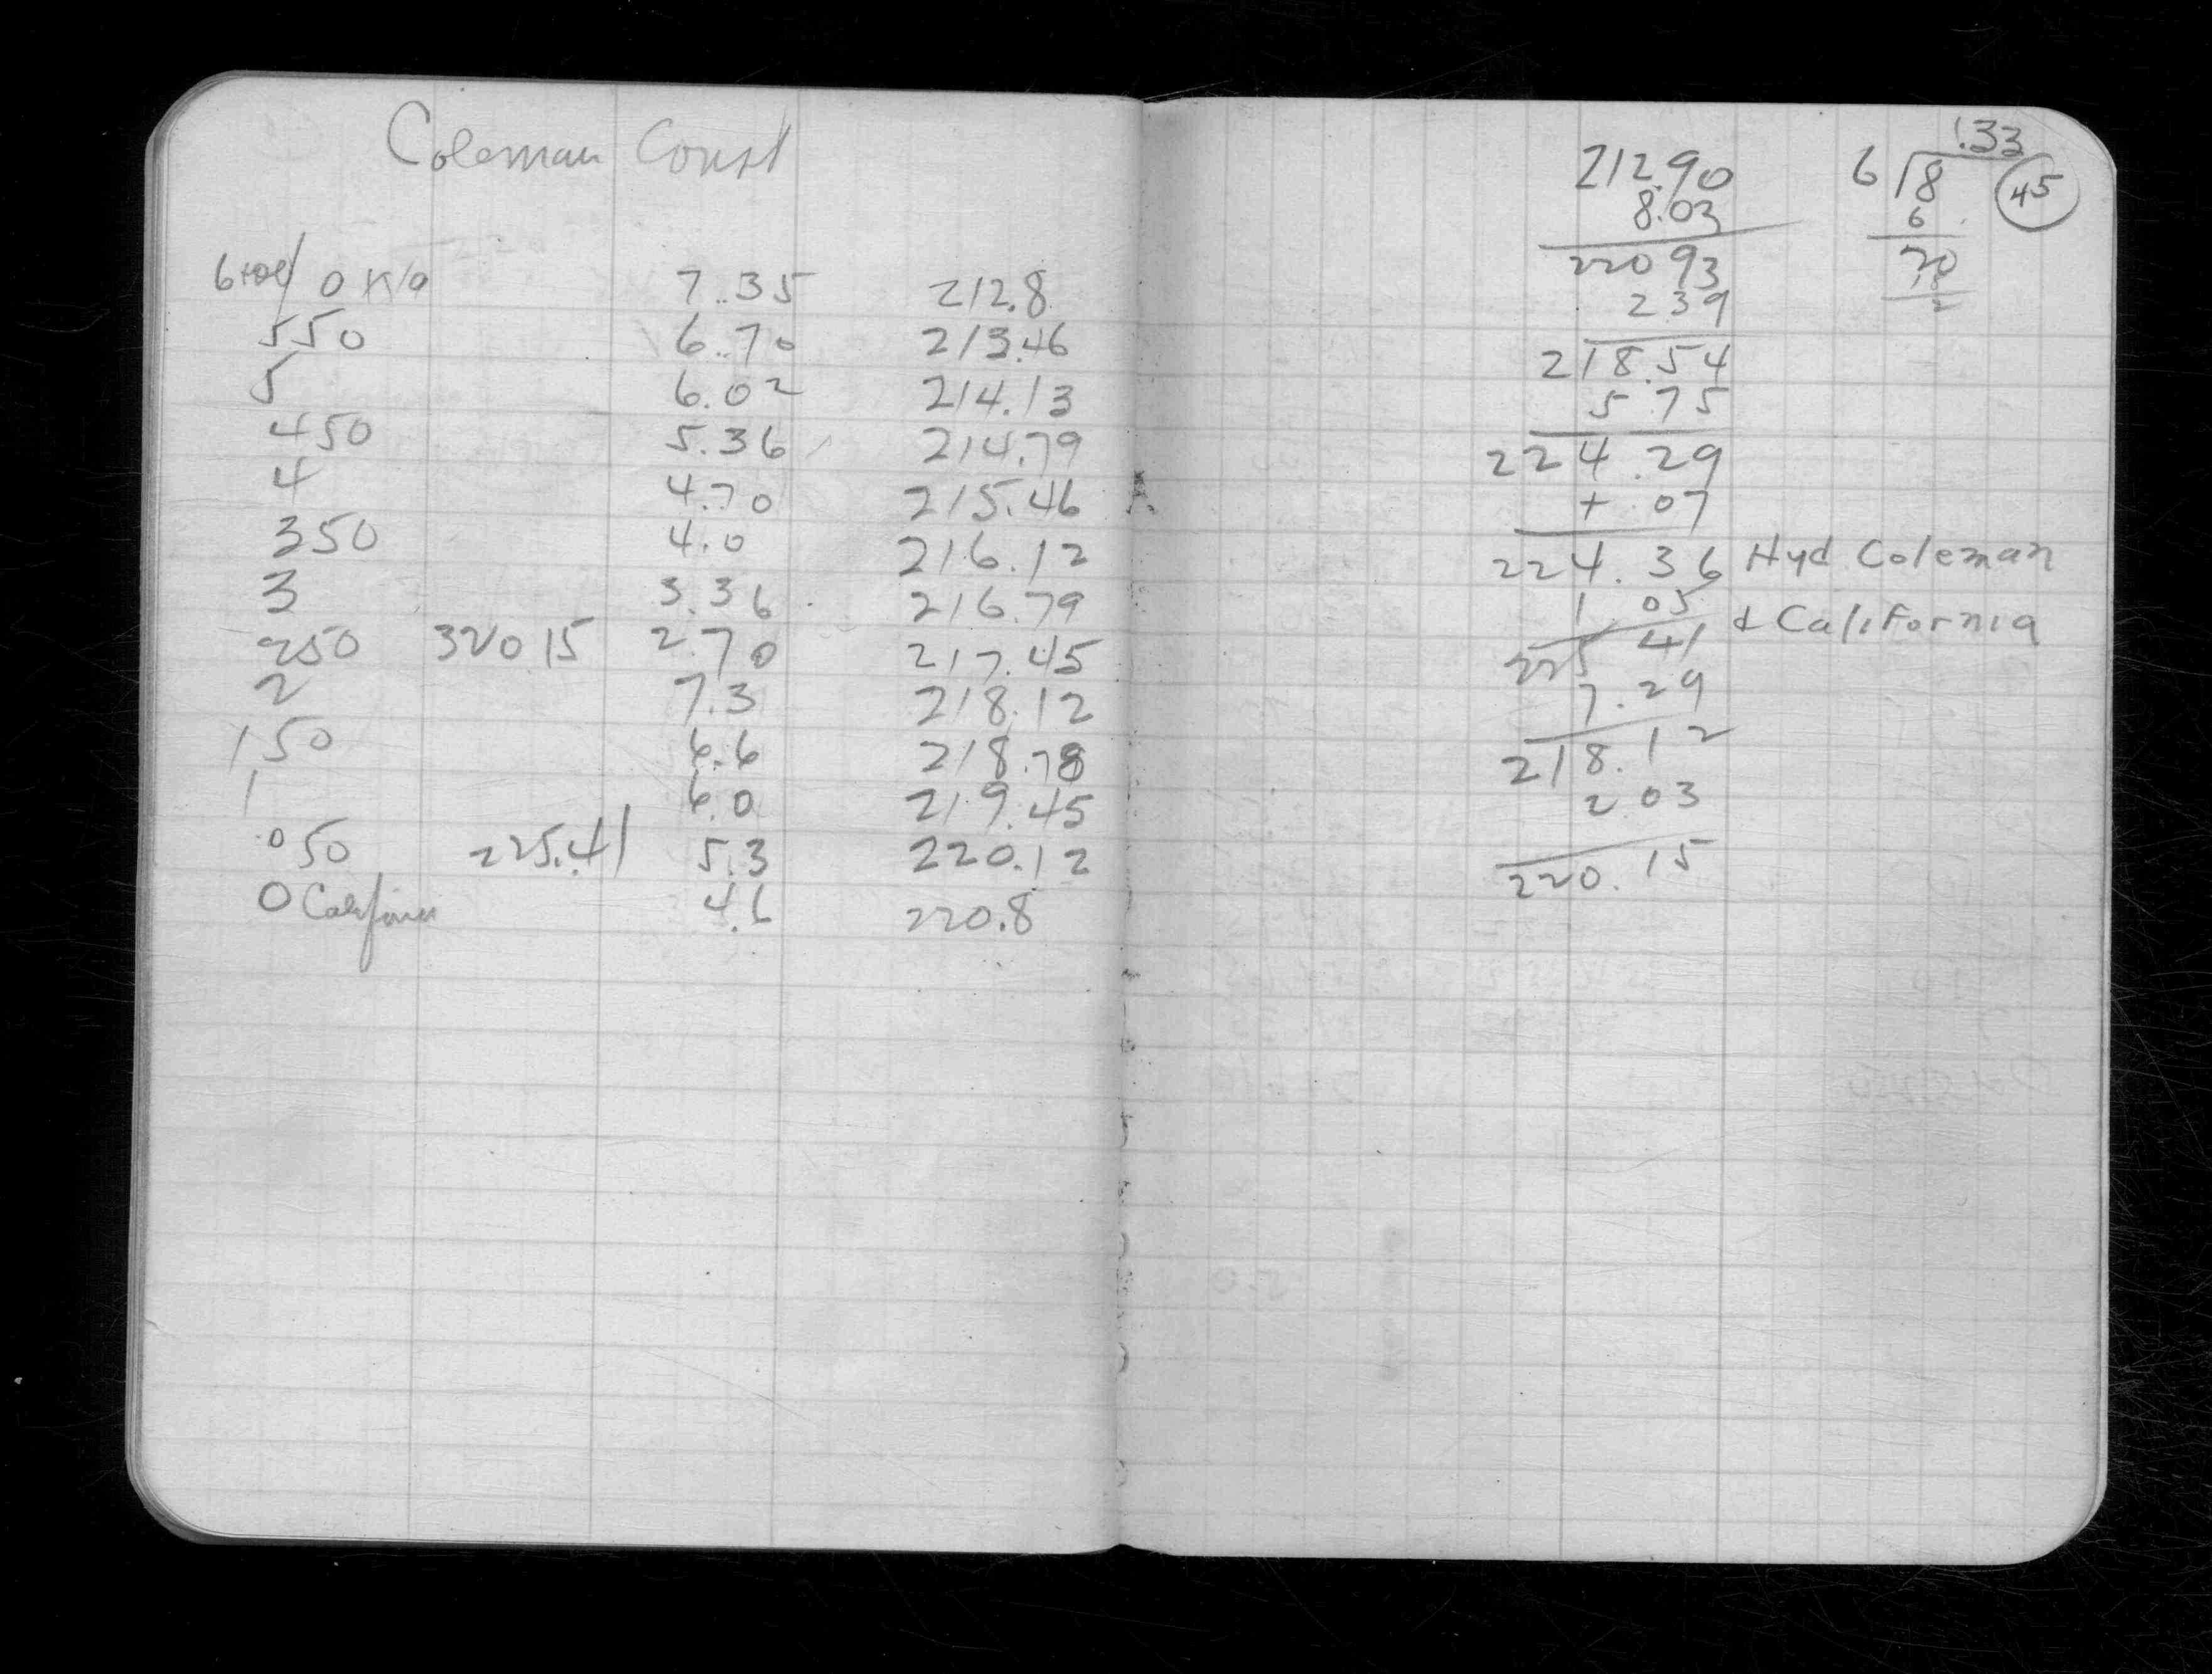 Coleman Const
6+00 0
7.35 212.8
550 6.70 213.46
5 6.02 214.13
450 5.36 214.79
4 4.70 215.46
350 4.0 216.12
3 3.36 216.79
250 320 15 2.70 217.45
2 7.3 218.12
150 6.6 218.78
1 6.0 219.45
050 225.41 5.3 220.12
0 California 4.6 220.8
212.90
8.03
220 93
2 39
218.54
5 75
224.29
+ .07
224.36 Hyd Coleman
1 05 & California
225 41
7.29
218.12
2 03
220.15
1.33
6 18
6
20
18
2
45